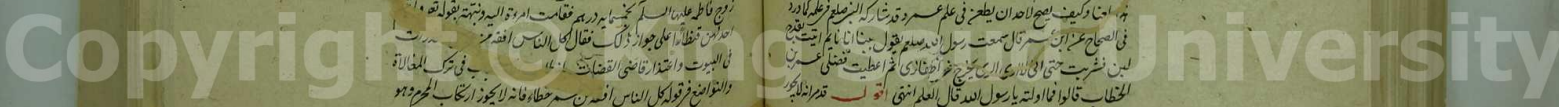 وكيف يصح لاحد ان يطعن فى علم عمر و قد شاركه النبى صلعم فى علمه كما ورد
فى الصحاح عن ابن عمر قال سمعت رسول الله صلعم يقول بينا انا نايم اتيت بقدح
لبن فشربت حتى انى لارى الرى يخرج فى اظفارى ثم اعطيت فضلى عمر بن
الخطاب قالوا فما اولته يا رسول الله قال العلم انتهى اقول قد مر انه لا يجوز
زوج فاطمة عليها السلم بخمسمايه درهم فقامت امرءة اليه ونبهته بقوله تعالى
احديهن قنطارا على جواز ذلك فقال كل الناس افقه من
فى البيوت واعتذار قاضى القضات فى ترك المغالاة
والتواضع فى قوله كل الناس افقه من عمر خطاء فانه لا يجوز ارتكاب المحرم وهو
Copyright © University